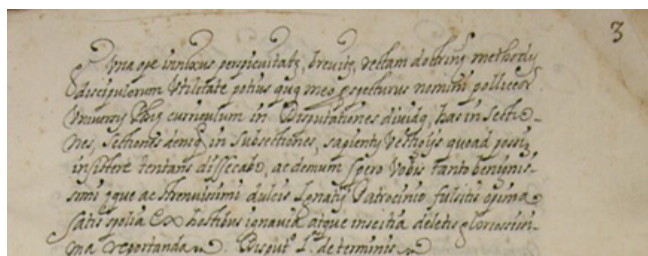 3
ope innixus perspicuitatę, brevitę, rectam doctrinę methodū
discipulorum Utilitate potius quą meo prospecturus nomini polliceor
Universę curriculum in Disputationes dividą, has in sectio-
nes, sectiones deniq in subsectiones, sapientū Vestigijs quoad possū
insistere tentans dissecabo, ac demum spero Vobis tanto benignis-
simi ac strenuissimi ducis Ignatij Patrocinio fulsitis opima
satis spolia Ex hostibus ignavia atque inscitia deletis gloriosissi-
ma reportanda. Disput. 1.ª de terminis